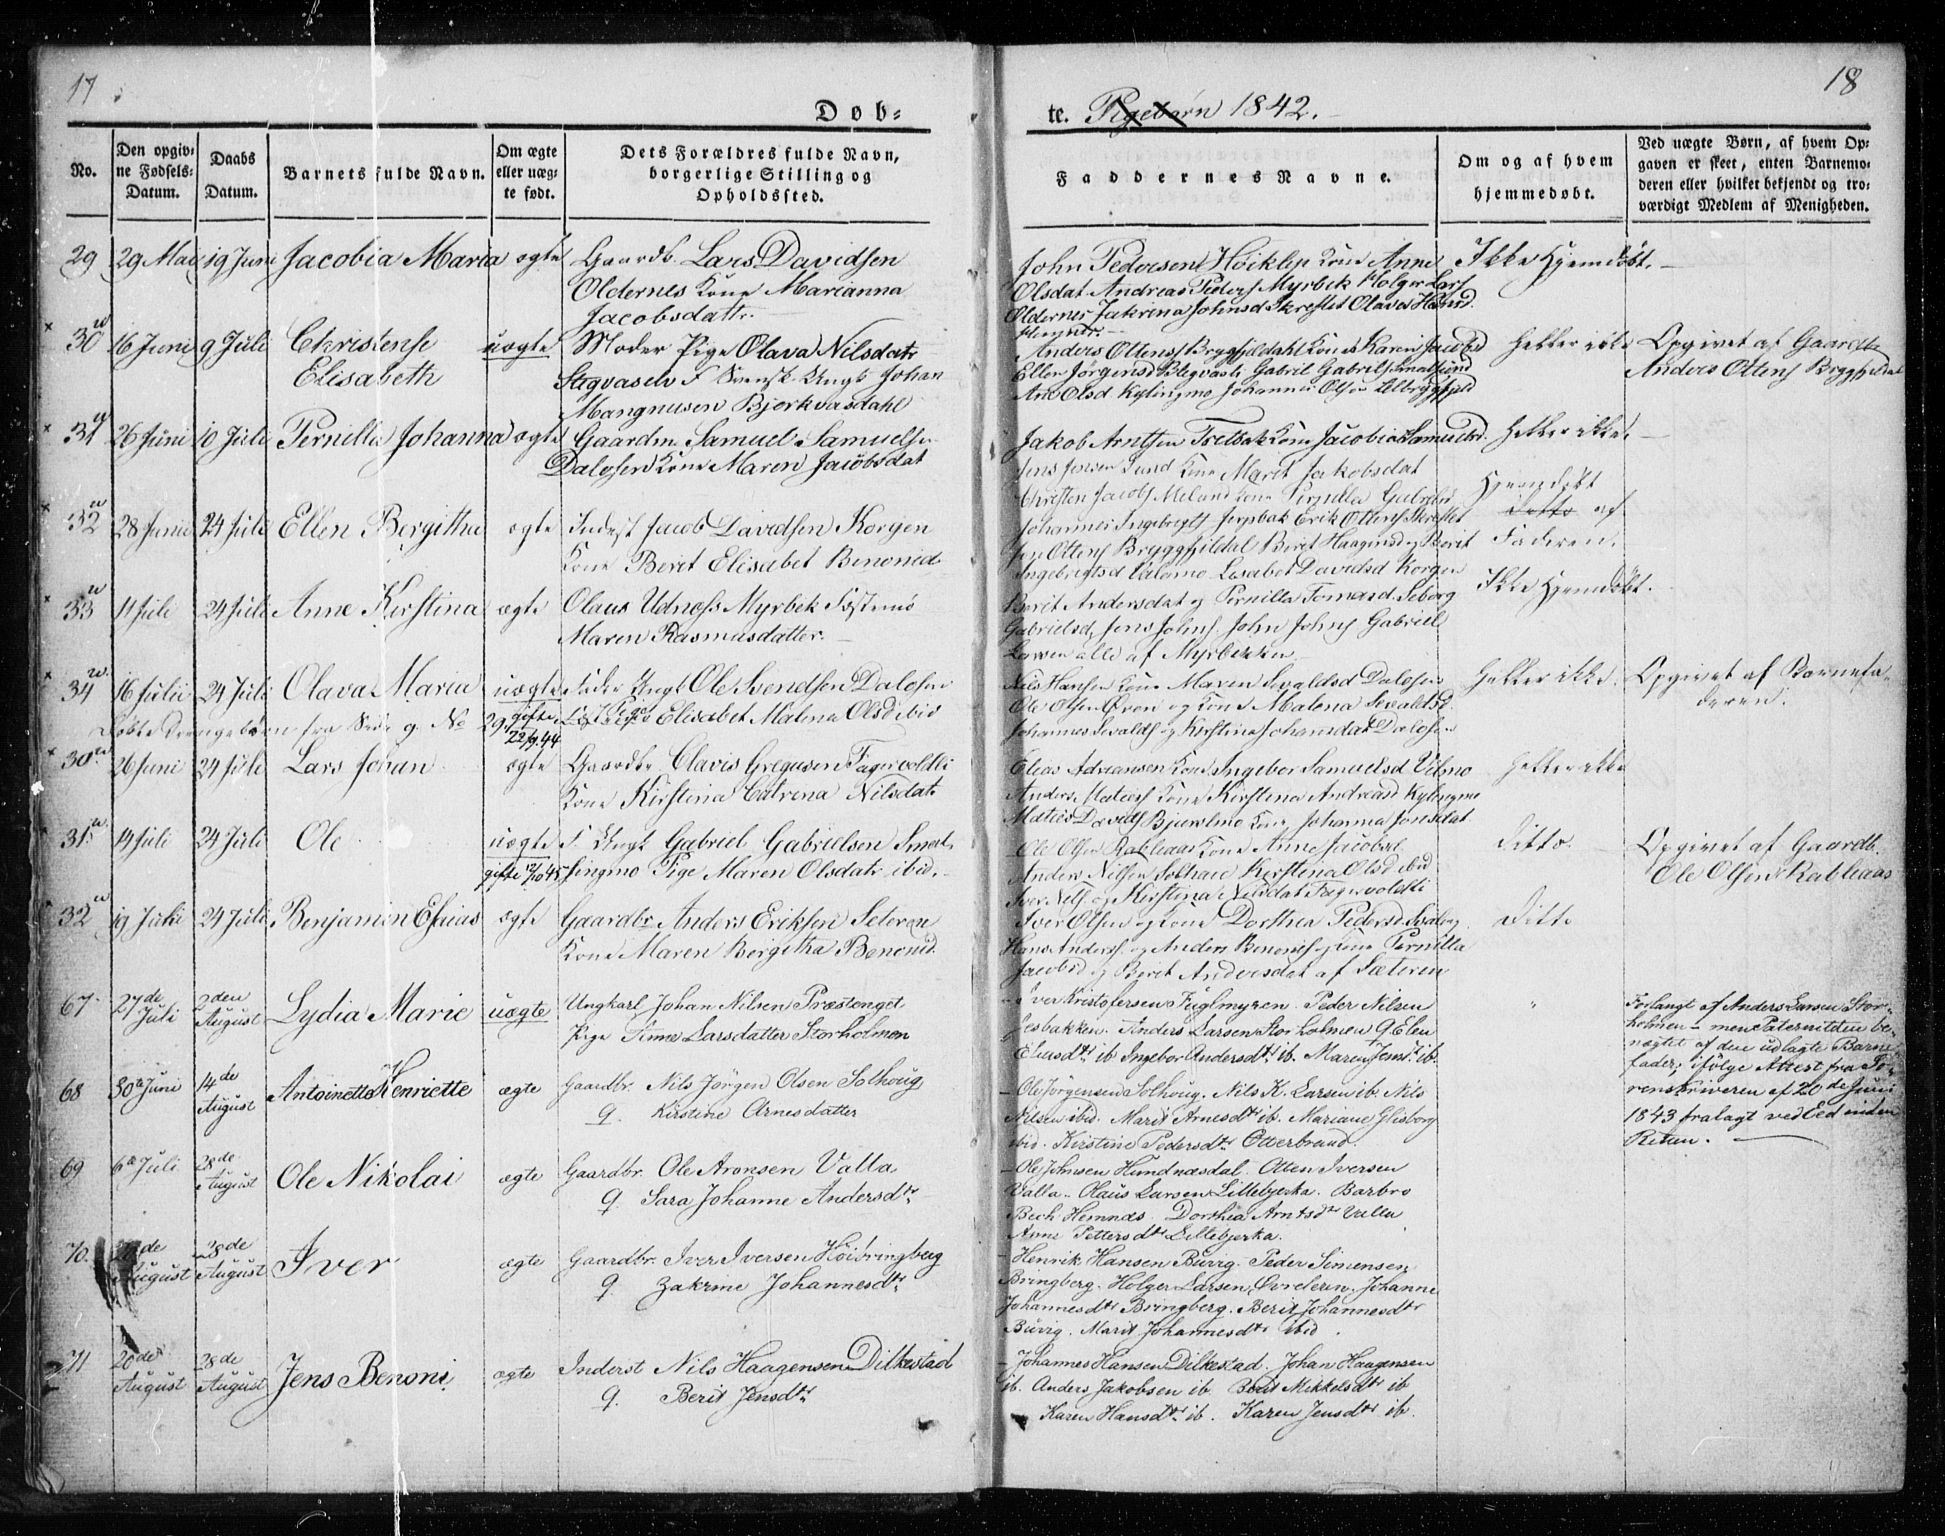 17
18
Døb=
te. Pigebørn 1842.
No.
Den opgiv=
ne Fødsels=
Datum.
Daabs
Datum.
Barnets fulde Navn.
Om ægte
eller uæg=
te født.
Dets Forældres fulde Navn,
borgerlige Stilling og
Opholdssted.
Faddernes Navne.
Om og af hvem
hjemmedøbt.
Ved uægte Børn, af hvem Op=
gaven er skeet, enten Barnemo=
deren eller hvilket bekjendt og tro=
værdigt Medlem af Menigheden.
29 29 Mai 19 Juni Jacobia Maria ægte Gaardb. Lars Davidsen
Oldernes Kone Marianna
Jacobsdattr.
John Pedersen Høiklep Kone Anne
Olsdat Andreas Peders Myrbek Holger Lars
Oldernes Jakrina Johnsd Skreslet Olava
Ikke Hjemdøbt.
30 16 Juni 9 Juli Christense
Elisabeth
uægte Moder Pige Olava Nilsdatr
Stegvaseli F Svensk Ungk Johan
Mangnusen Bjorkvasdahl
Anders Ottens Bryggfjeldahl Kone Karen Jacobsd
Ellen Jörgensd Blegvasli Gabriel Gabriels Smalsund
Ane Olsd Kylingmo Johannes Olsen Lilbryggfjeld
Heller ikke Opgivet af Gaardb
Anders Ottens Bryggfjeldal
31 26 Juni 10 Juli Pernilla Johanna ægte Gaardm Samuel Samuelse
Dalosen Kone Maren Jacobsdat
Jakob Arntsen Kone Jacobia Samuelsd.
Jens Jensen Sund Kone Marit Jakobsdat
Christen Jacobs Meland Kone Pernilla Gabrielsd
Heller ikke.
32 28 Juni 24 Juli Ellen Bergitha ægte Inderst Jacob Davidsen Korgen
Kone Berit Elisabet Benonid
Johannes Ingebrigts Jerpbak Erik Ottens Skreslet
Jen Ottens Bryggfjeldal Berit Haagensd og Berit
Ingebrigtsd Valomo Lisabet Davidsd Korgen
Hjemdøbt
ditto af
Faderen.
33 11 Juli 24 Juli Anne Kirstina ægte Olaus Udness Myrbek Fæstemø
Maren Rasmusdatter.
Berit Andersdat og Pernilla Tomasd Seborg
Gabrielsd, Jens Johns John Johns Gabriel
Larsen alle af Myrbekken
Ikke Hjemdøbt.
34 16 Julii 24 Juli Olava Maria uægte Fader Ungk Ole Svendsen Dalosen
Pige Elisabet Malena Olsd ibid
Nils Hansen Kone Maren Sevaldsd Dalosen
Ole Olsen Øvren og Kone Malena Sevaldsd.
Johannes Sevalds og Kirstina Johansdat Dalosen
Heller ikke. Opgivet af Barnefa-
deren.
Døbte Drengebørn fra Side 9. No 29
gifte
22/9 44
30 26 Juni 24 Juli Lars Johan ægte Gaardbr Clavis Gregusen Fagervoldli
Kone Kirstina Catrena Nilsdat.
Elias Adriansen Kone Ingebor Samuelsd Vilmo
Anders Mateess Kone Kirstina Andreasd Kylingmo
Maties Davids Bjurslmo Kone Johanna Jonsdat
Heller ikke
31 14 Juli 24 Juli Ole uægte F. Ungk Gabriel Gabrielsen Smal-
gifte 12/10 45 singmo Pige Maren Olsdatr ibid.
Ole Olsen Rableaas Kone Anne Jacobsd.
Anders Nilsen Solhau Kirstina Olsd ibid
Iver Nils og Kirstina Nilsdat Fagervoldli
Ditto. Opgivet af Gaardb.
Ole Olsen Rableaas
32 19 Juli 24 Juli Benjamin Esaias ægte Gaardbr Anders Eriksen Seteren
Kone Maren Bergitha Benonid.
Iver Olsen og Kone Dorthea Pedersd
Hans Anders og Anders Benonis og Kone Pernilla
Jacobsd og Berit Andersdat af Sæteren
Ditto
67. 27de
Juli
2den
August
Lydia Marie uægte Ungkarl Johan Nilsen Præstenget
Pige Anne Larsdatter Storholmen
- Iver Kristofersen Fuglmyren. Peder Nilsen
Lesbakken. Anders Larsen Storholmen q Elen
Eliasdtr ib Ingebor Andersdtr ib. Maren Jensdtr ib.
Forlangt af Anders Larsen Stor-
holmen - men Paterniteten be-
nægtet af den udlagte Barne-
fader, ifølge Attest fra So-
renskriveren af 20de Juni
1843 fralagt ved Eed inden
Retten.
68 30te Juni 14de
August
Antoinette Henriette ægte Gaardbr. Nils Jörgen Olsen Solhoug
q. Kirstine Arnesdatter
- Ole Jörgensen Solhoug. Nils K. Larsen ib. Nils
Nilsen ibid. Marit Arnesdtr ib. Mariane Glisborg
ibid. Kirstine Pedersdtr Otterbrand.
69 6te Juli 28de
August
Ole Nikolai ægte Gaardbr. Ole Aronsen Valla
q. Sara Johanne Andersdtr
- Ole Johnsen Hundnæsdal. Otten Iversen
Valla. Olaus Larsen Lillebjerka. Barbro
Bech Hemnæs. Dorthea Arntsdtr Valla
Anne Pettersdtr Lillebjerka.
70.
August
28de
August
Iver ægte Gaardbr. Iver Iversen Höibringberg
q. Zakrine Johannesdtr
- Henrik Hansen Buvig. Peder Simensen
Bringberg. Holger Larsen, Johanne
Johannesdtr Bringberg. Berit Johannesdtr
Buvig. Marit Johannesdtr ibid.
71 20de
August
28de
August
Jens Benoni ægte Inderst Nils Haagensen Dilkestad
q. Berit Jensdtr
- Johannes Hansen Dilkestad. Johan Haagensen
ib. Anders Jakobsen ib. Berit Mikkelsdtr ib
Karen Hansdtr ib. Karen Jensdtr ib.